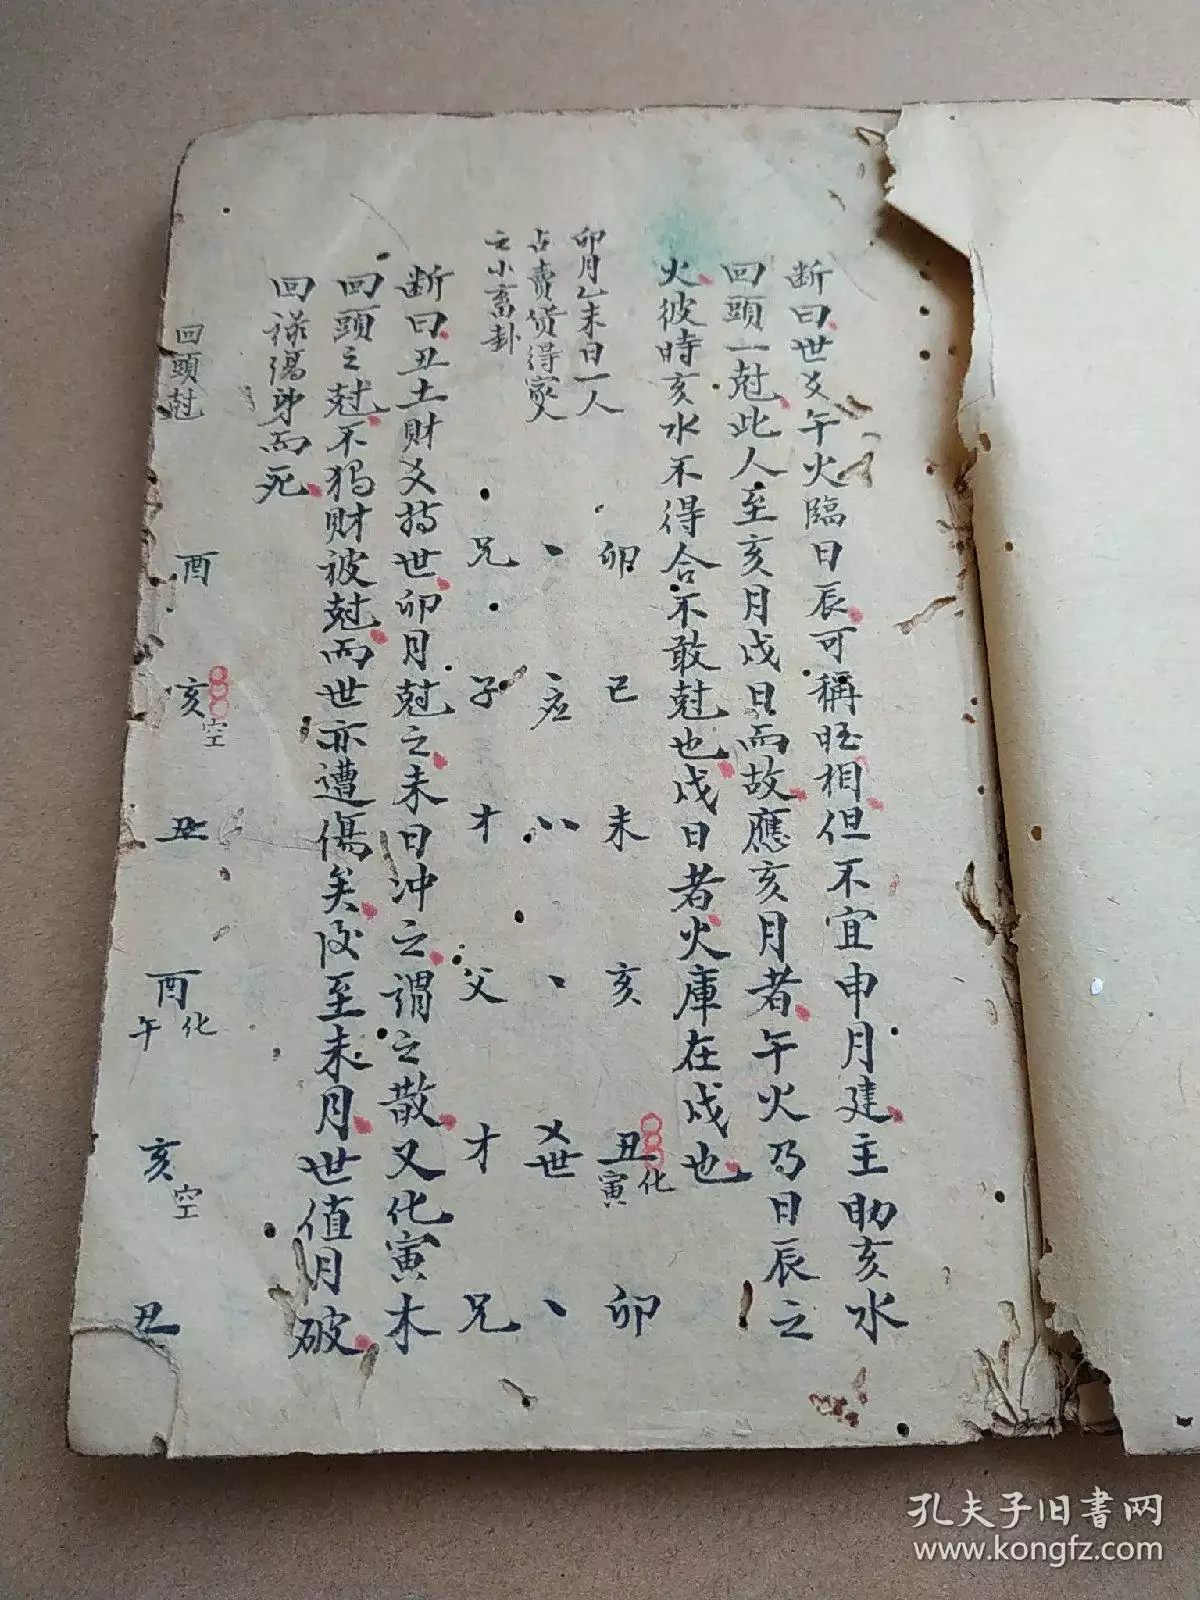 断曰世爻午火臨日辰可稱旺相但不宜申月建主助亥水
回頭一尅此人至亥月戌日而故應亥月者午火乃日辰之
火彼時亥水不得合不敢尅也戌日者火庫在戌也
卯月乙未日一人
占賣貨得家人
之小畜卦
卯 巳 未 亥 丑化寅 卯
、 、应 八 、 乂世 、
兄 子 才 父 才 兄
断曰丑土財爻持世卯月尅之未日冲之謂之散又化寅木
回頭之尅不独財被尅而世亦遭傷矣後至未月世值月破
回禄傷身而死
回頭尅
酉 亥空 丑 酉化午 亥空 丑
孔夫子旧书网
www.kongfz.com